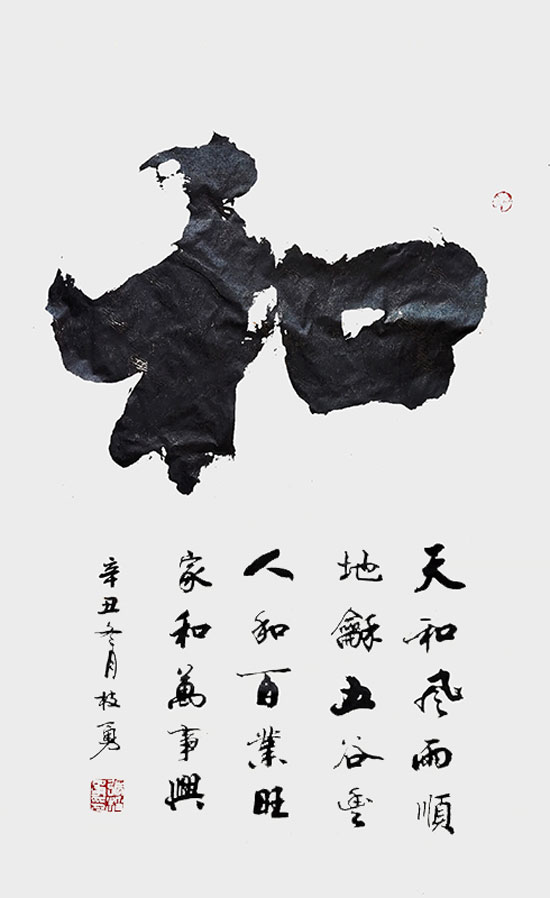 和
天和风雨順
地龢五谷豊
人和百業旺
家和萬事興
辛丑冬月枝勇